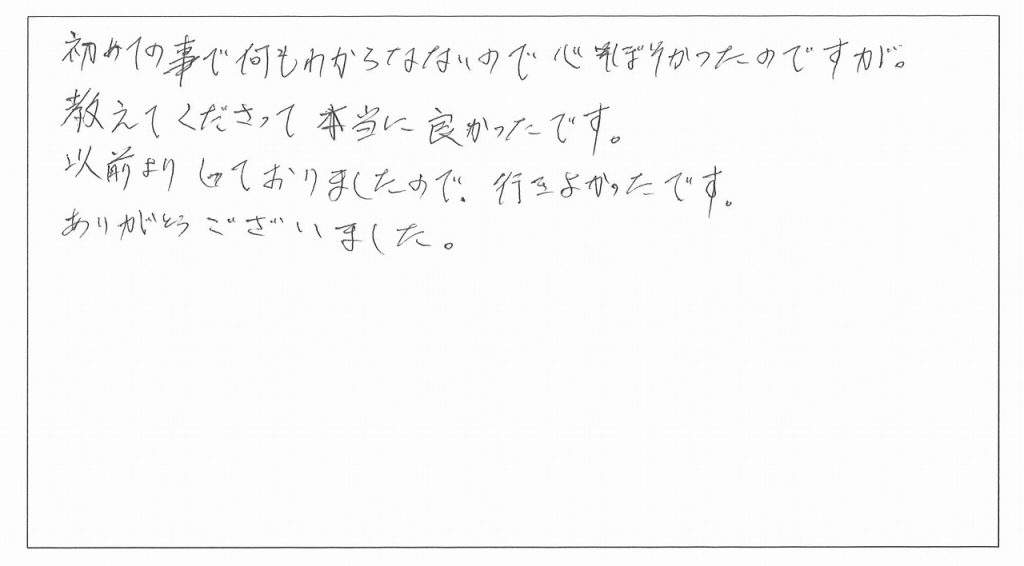 初めての事で何もわからなないので心ぼそかったのですが。
教えてくださって本当に良かったです。
以前より しておりましたので、行きよかったです。
ありがとうございました。